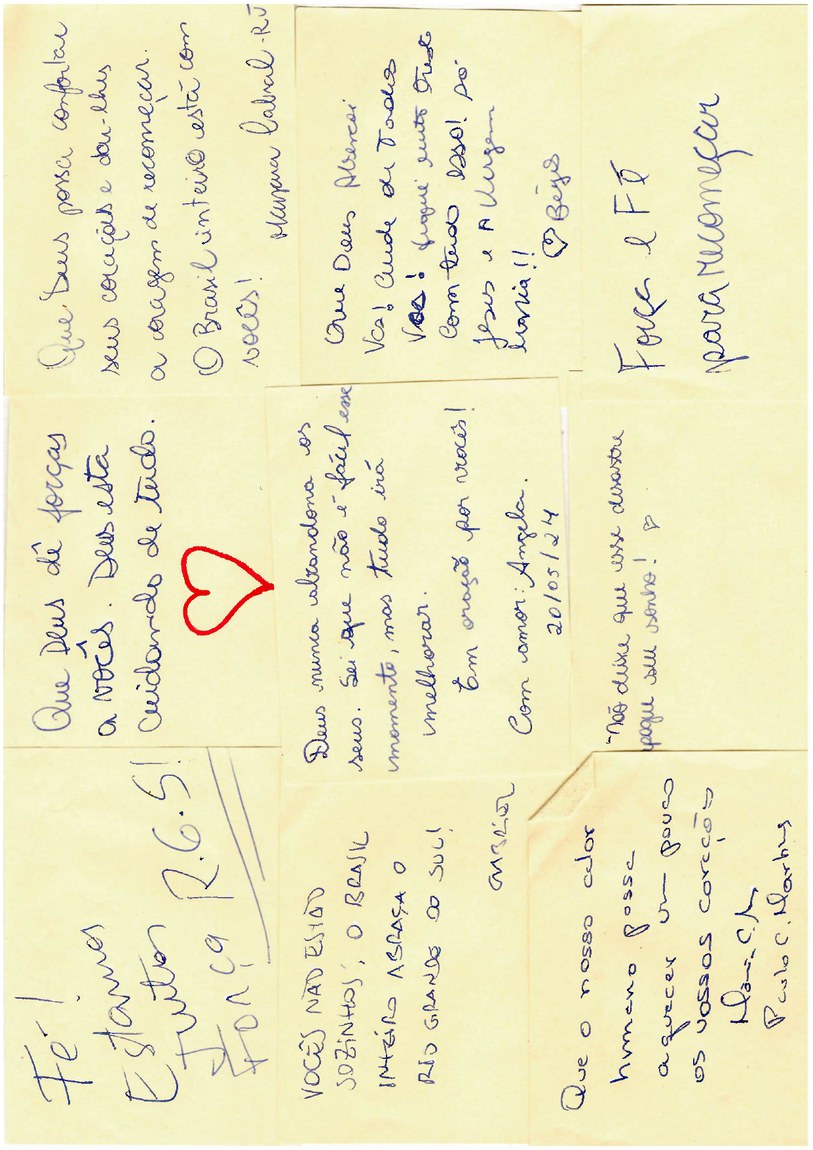 Fé!
Estamos
Juntos
Força R.G.S!
Que Deus dê forças
a vocês. Deus esta
cuidando de tudo.
Que Deus possa confortar
seus corações e dar-lhes
a coragem de recomeçar.
O Brasil inteiro está com
vocês!
Cabral-RJ
VOCÊS NÃO ESTÃO
SOZINHOS, O BRASIL
INTEIRO ABRAÇA O
RIO GRANDE DO SUL!
Deus nunca abandona os
seus. Sei que não é fácil esse
momento, mas tudo irá
melhorar.
Em oração por vocês!
Com amor: Angela.
20/05/24
Que Deus Abencoi
Vcs! Cuide de Todos
Vcs! fiquei muito triste
com tudo isso! só
Jesus e A Virgem
Maria!!
♡ Bégis
Que o nosso calor
humano possa
aquecer um pouco
os vossos corações
Paulo C. Martins
"Não deixe que esse desastre
apague seu sonho! ♡
Força e Fé
para recomeçar